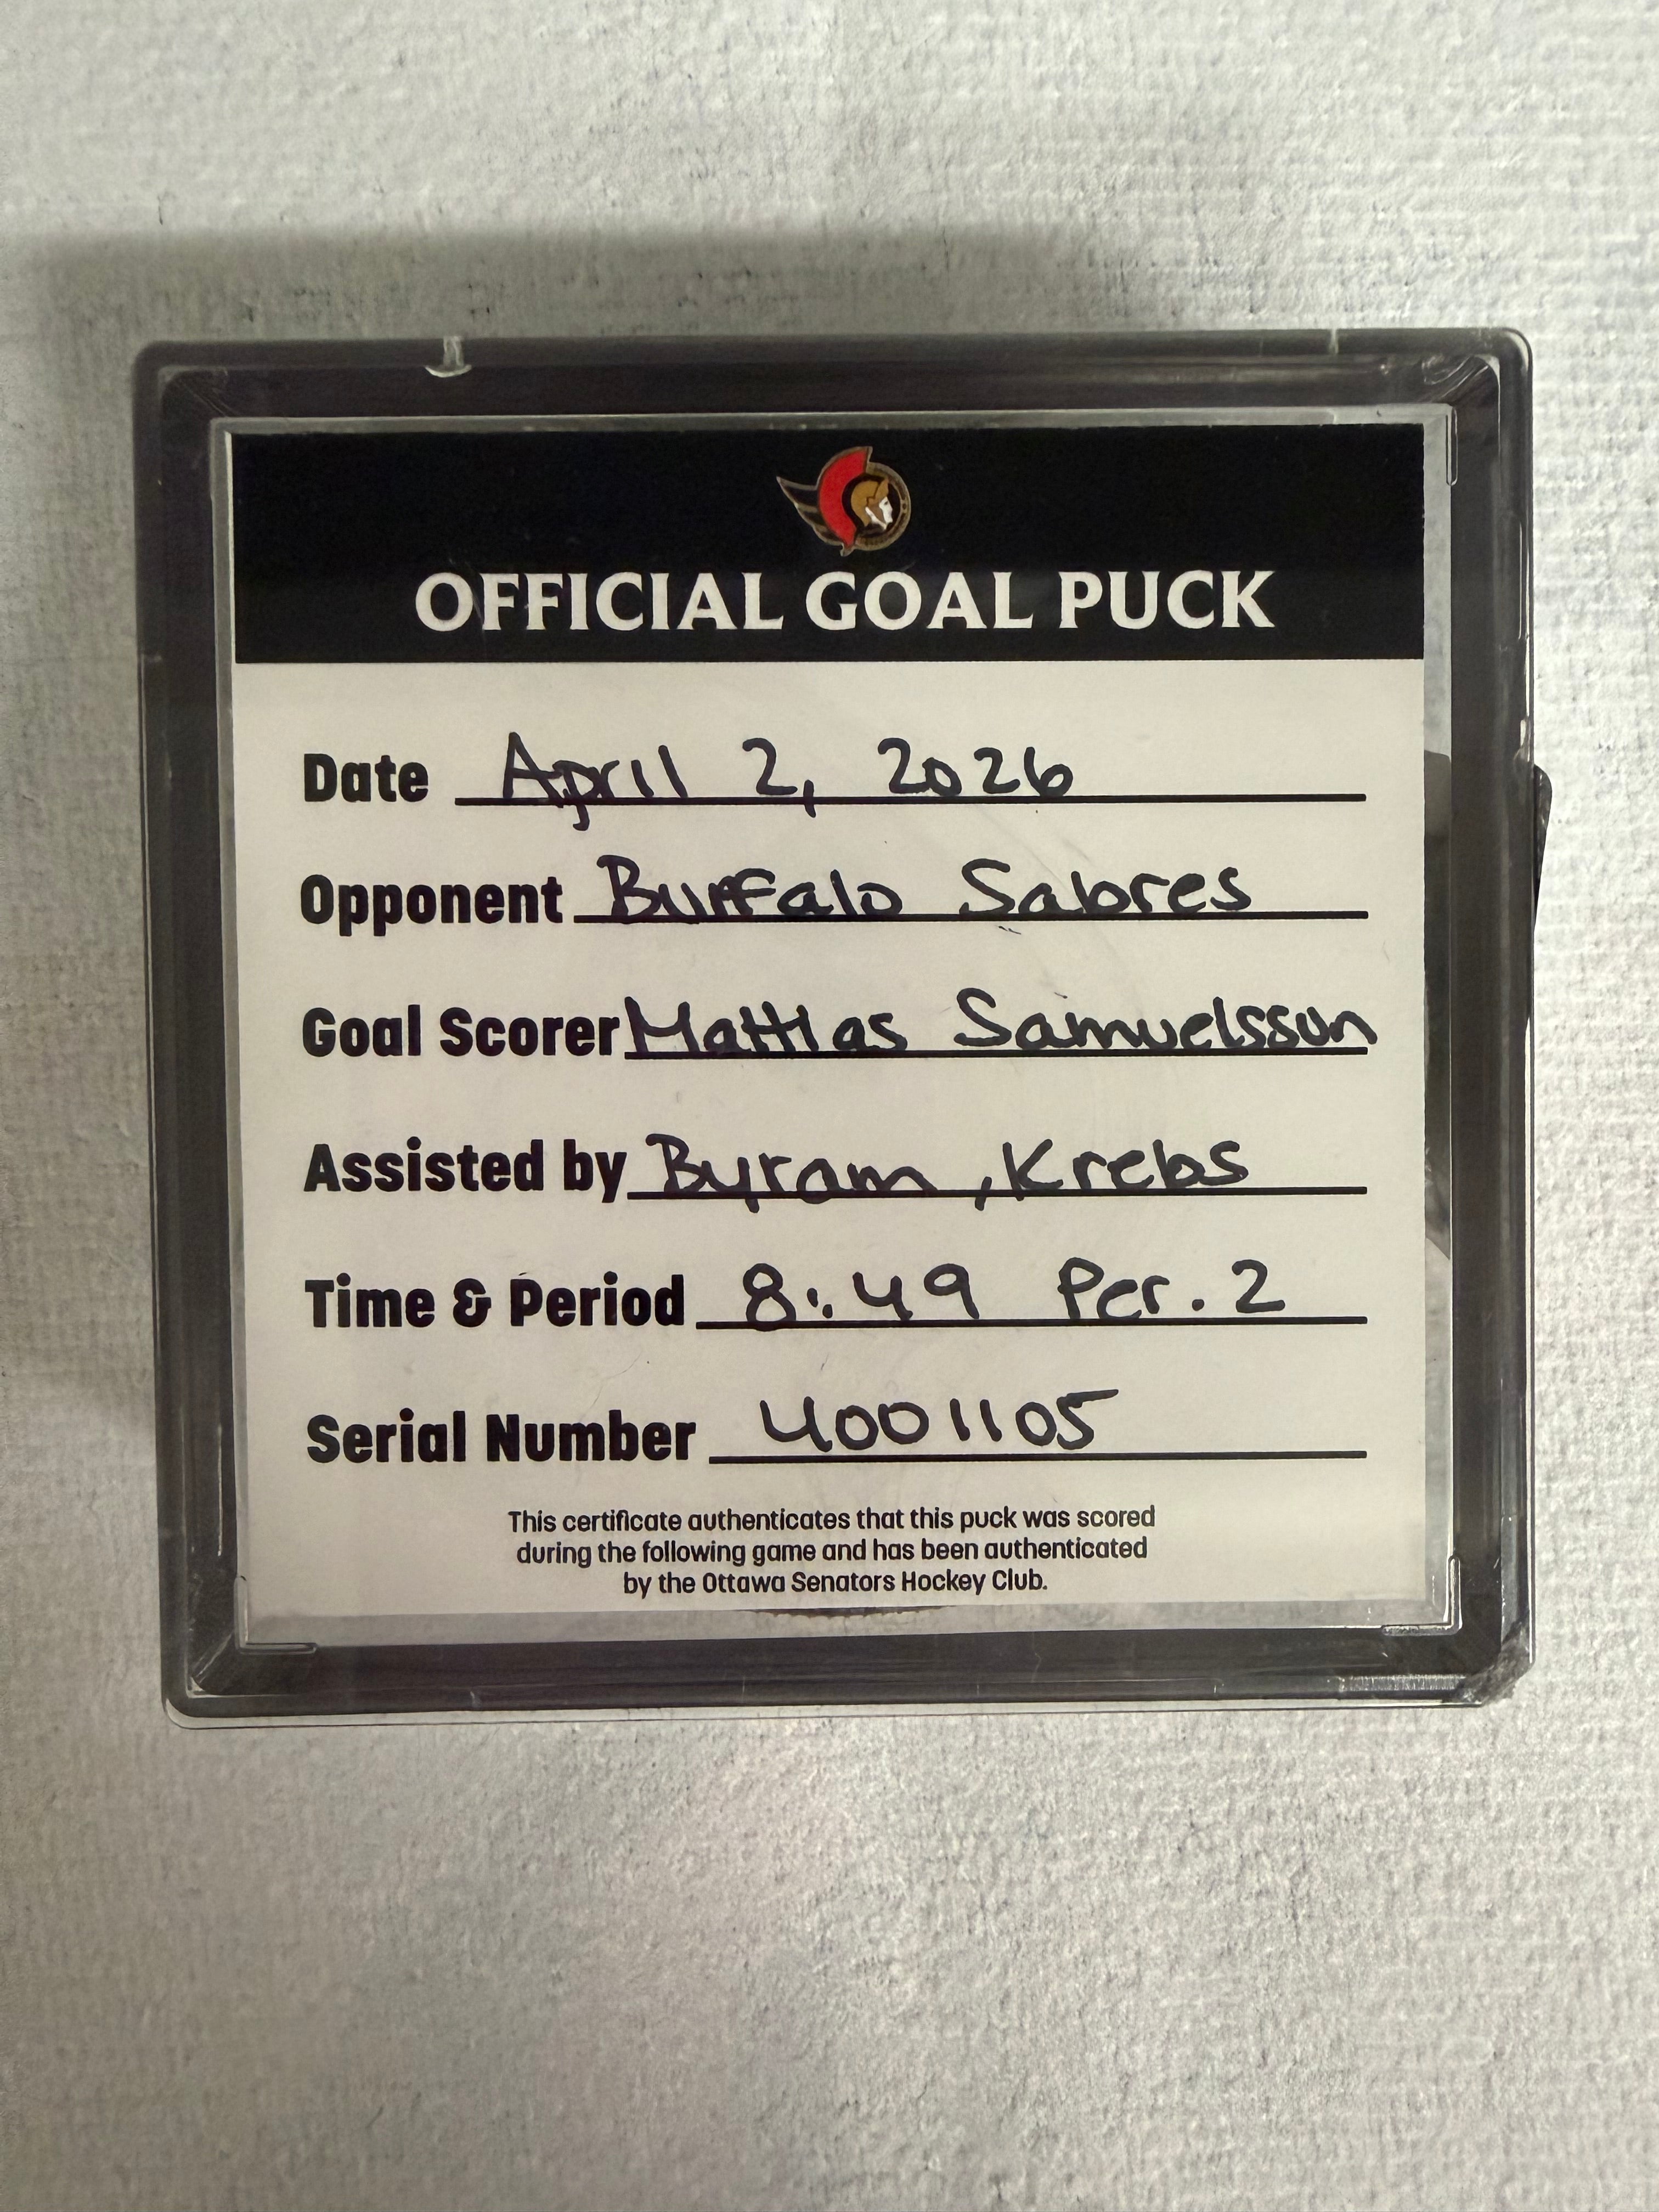 OFFICIAL GOAL PUCK
Date April 2, 2026
Opponent Buffalo Sabres
Goal Scorer Mattias Samuelsson
Assisted by Byram, Krebs
Time & Period 8:49 Per. 2
Serial Number 4001105
This certificate authenticates that this puck was scored
during the following game and has been authenticated
by the Ottawa Senators Hockey Club.